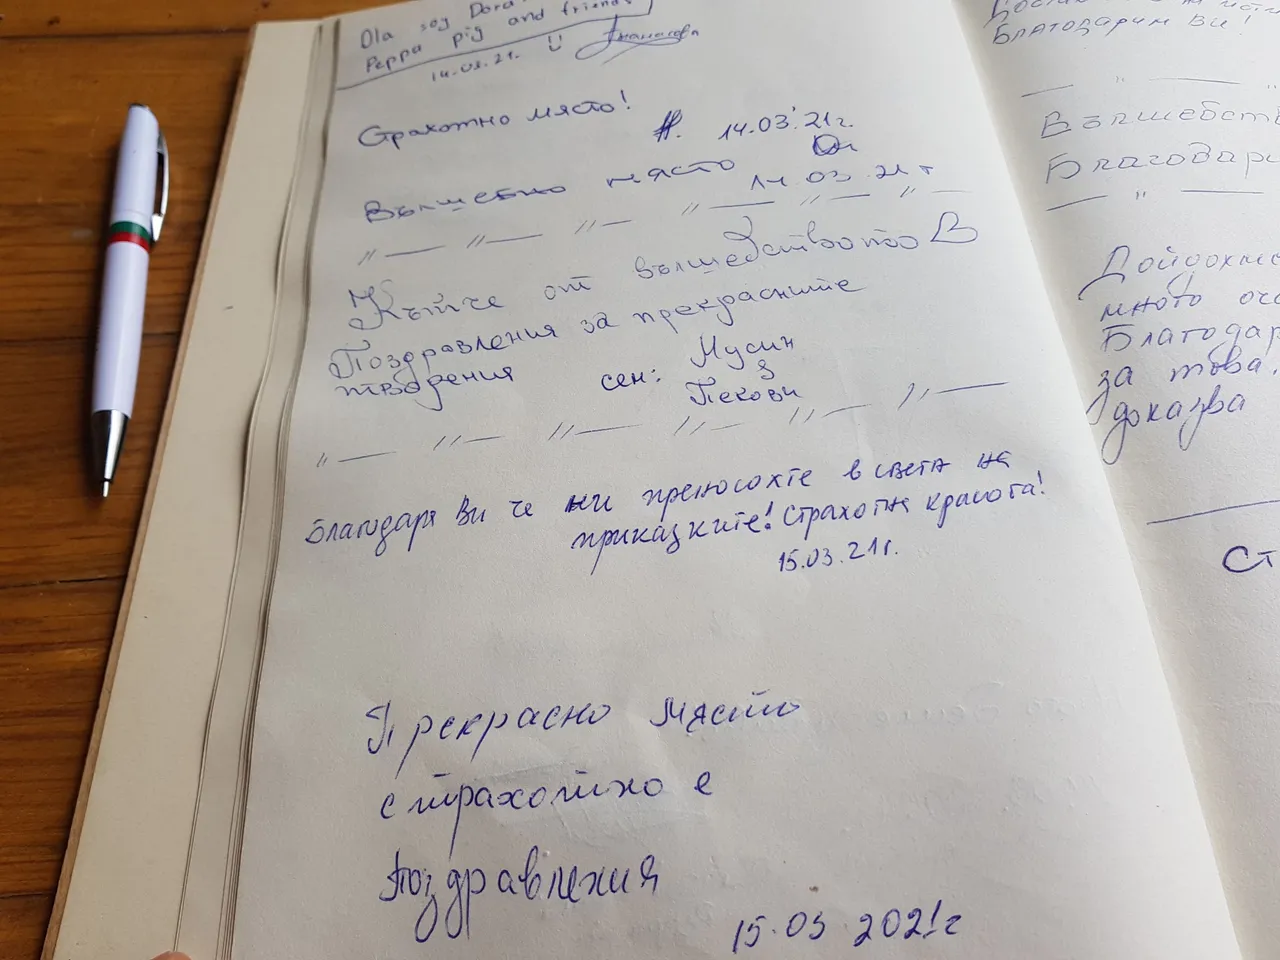 Ola soy Dora
Peppa pig and friends
14.03.21.
Страхотно място!
14.03.21г.
Вълшебно място
14 03 21 г
Кътче от вълшебството
Поздравления за прекрасните
творения сен: Мусин
Пекови
Благодаря Ви че ни преносохте в света на
приказките! Страхотна красота!
15.03.21г.
Прекрасно място
страхотно е
поздравления
15.03 2021г
Благодарим Ви!
Вълшебст
Благодари
Дойдохме
много оч
Благодар
за това.
доказва
Ст